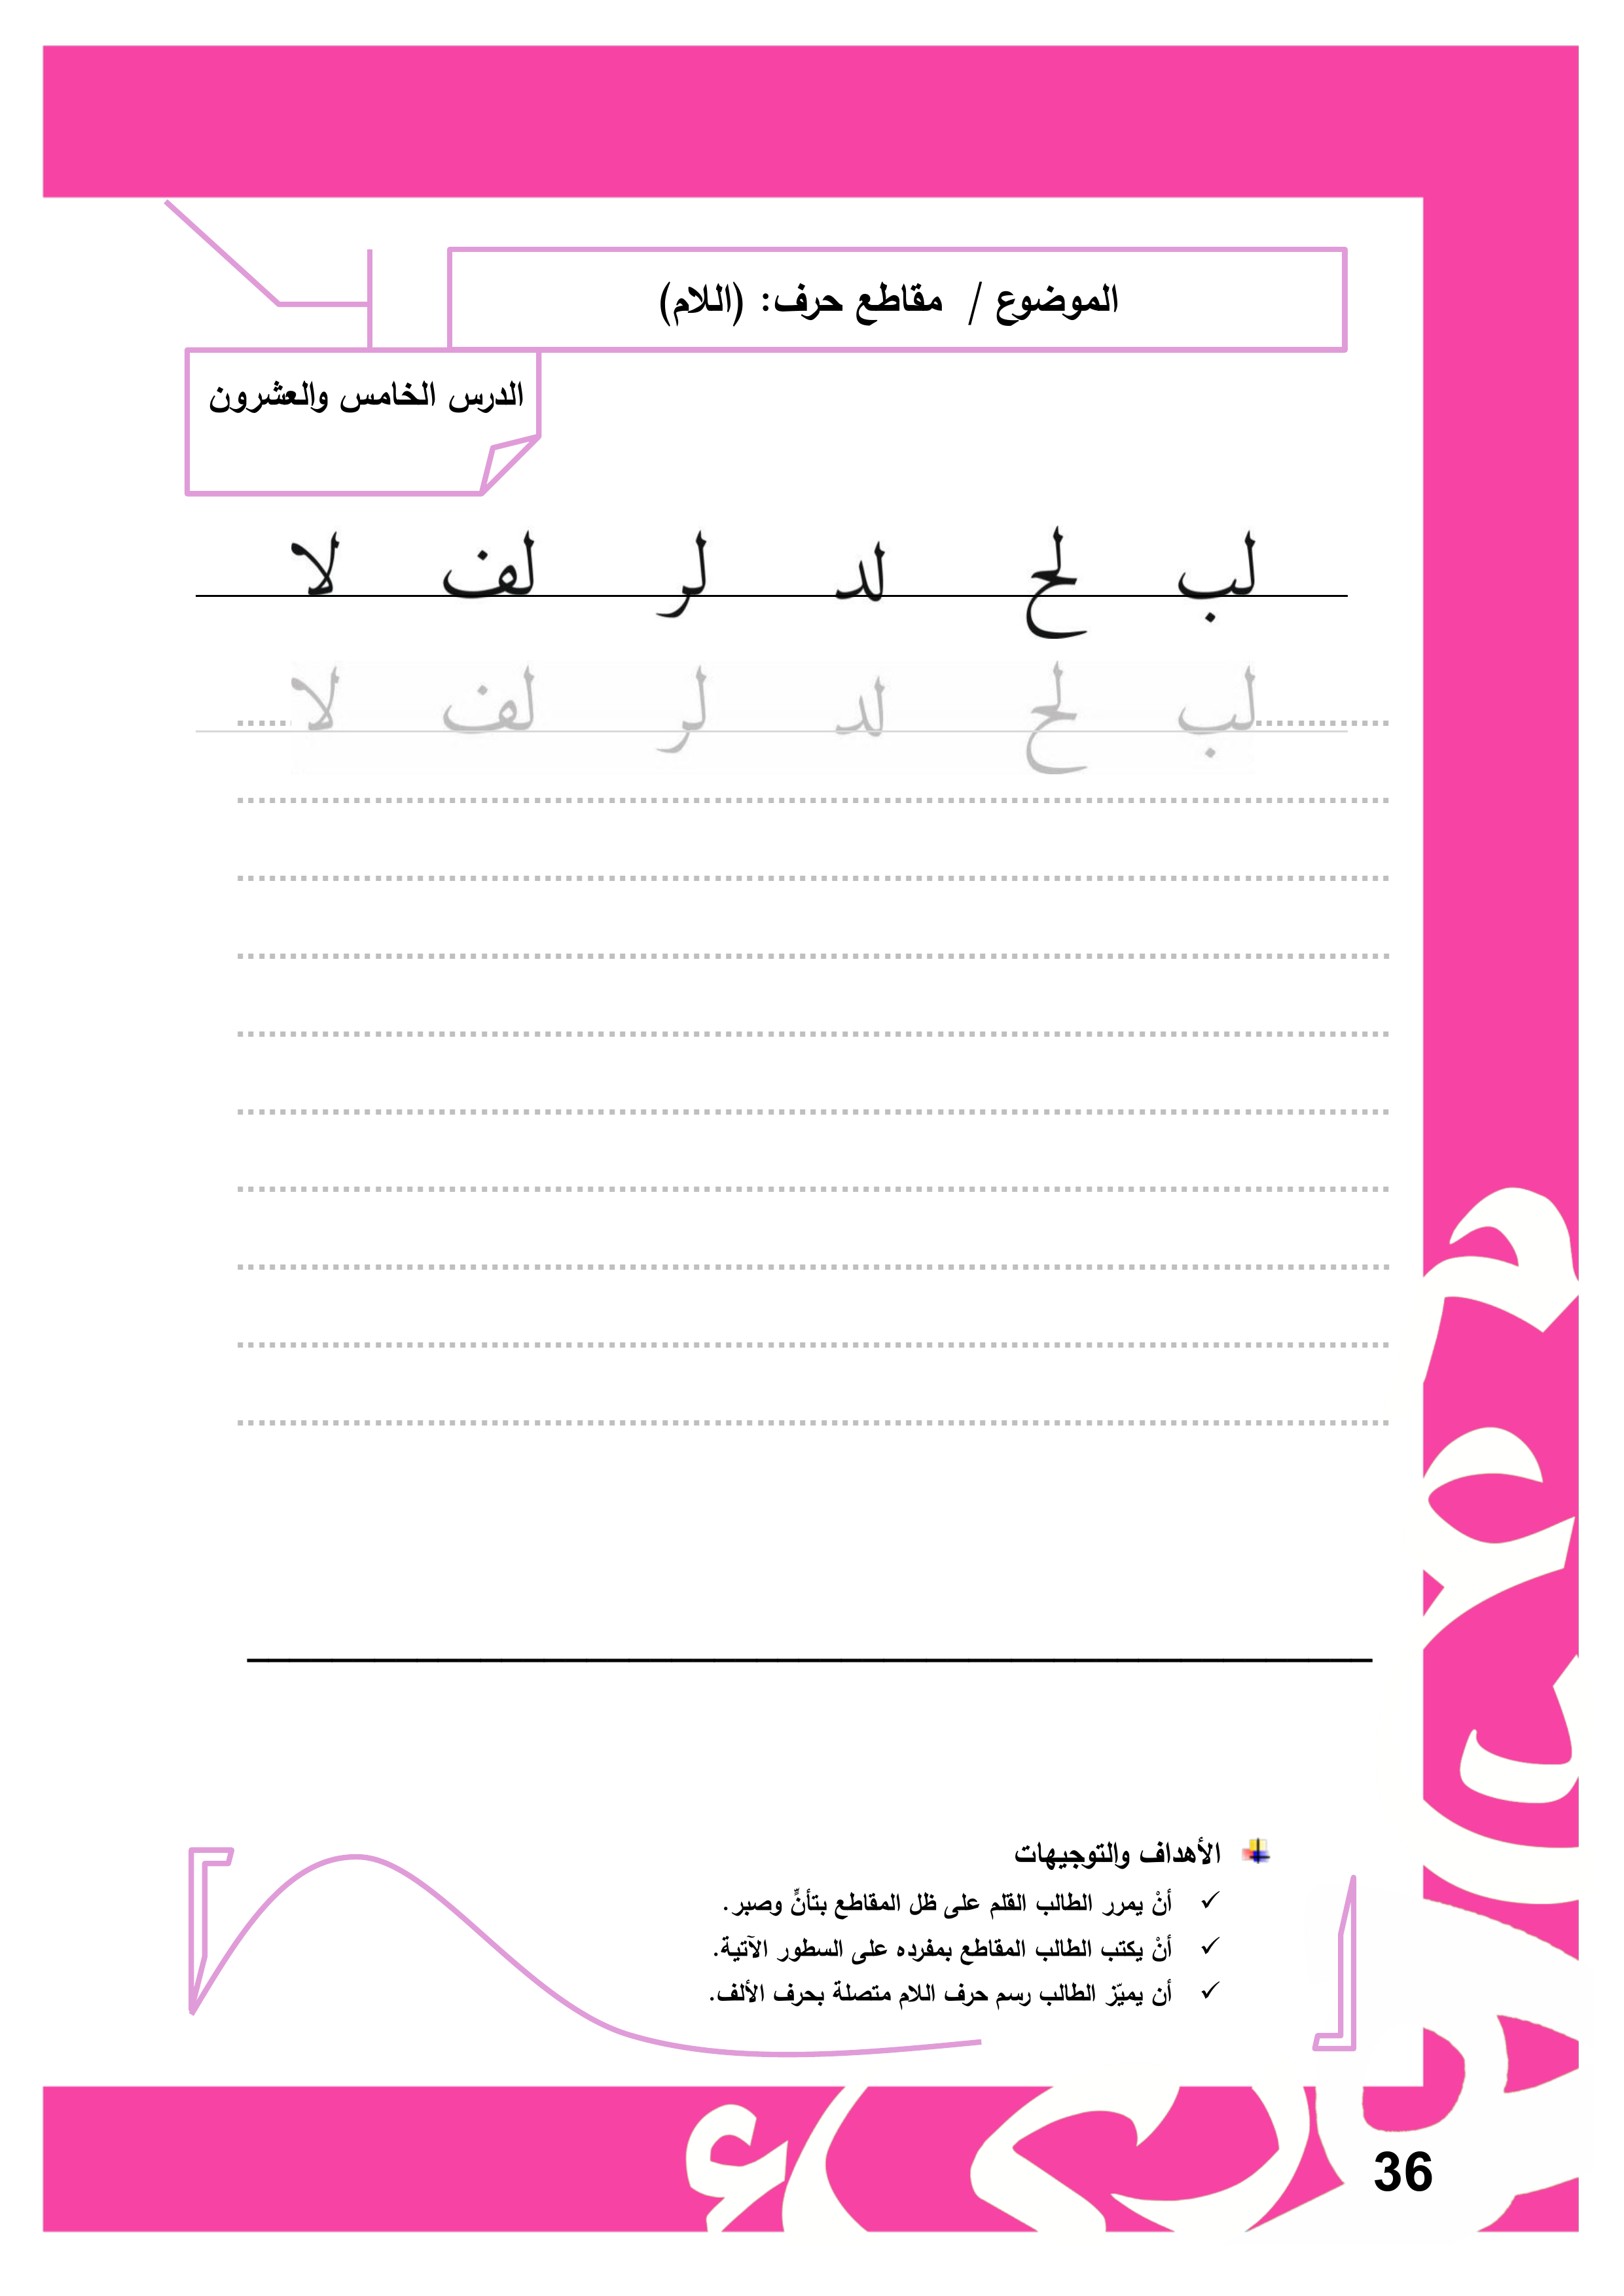 الموضوع / مقاطع حرف: (اللام)
الدرس الخامس والعشرون
لب لح لد لر لف لا
لب لح لد لر لف لا
الأهداف والتوجيهات
أنْ يمرر الطالب القلم على ظل المقاطع بتأنٍّ وصبر.
أنْ يكتب الطالب المقاطع بمفرده على السطور الآتية.
أن يميّز الطالب رسم حرف اللام متصلة بحرف الألف.
36